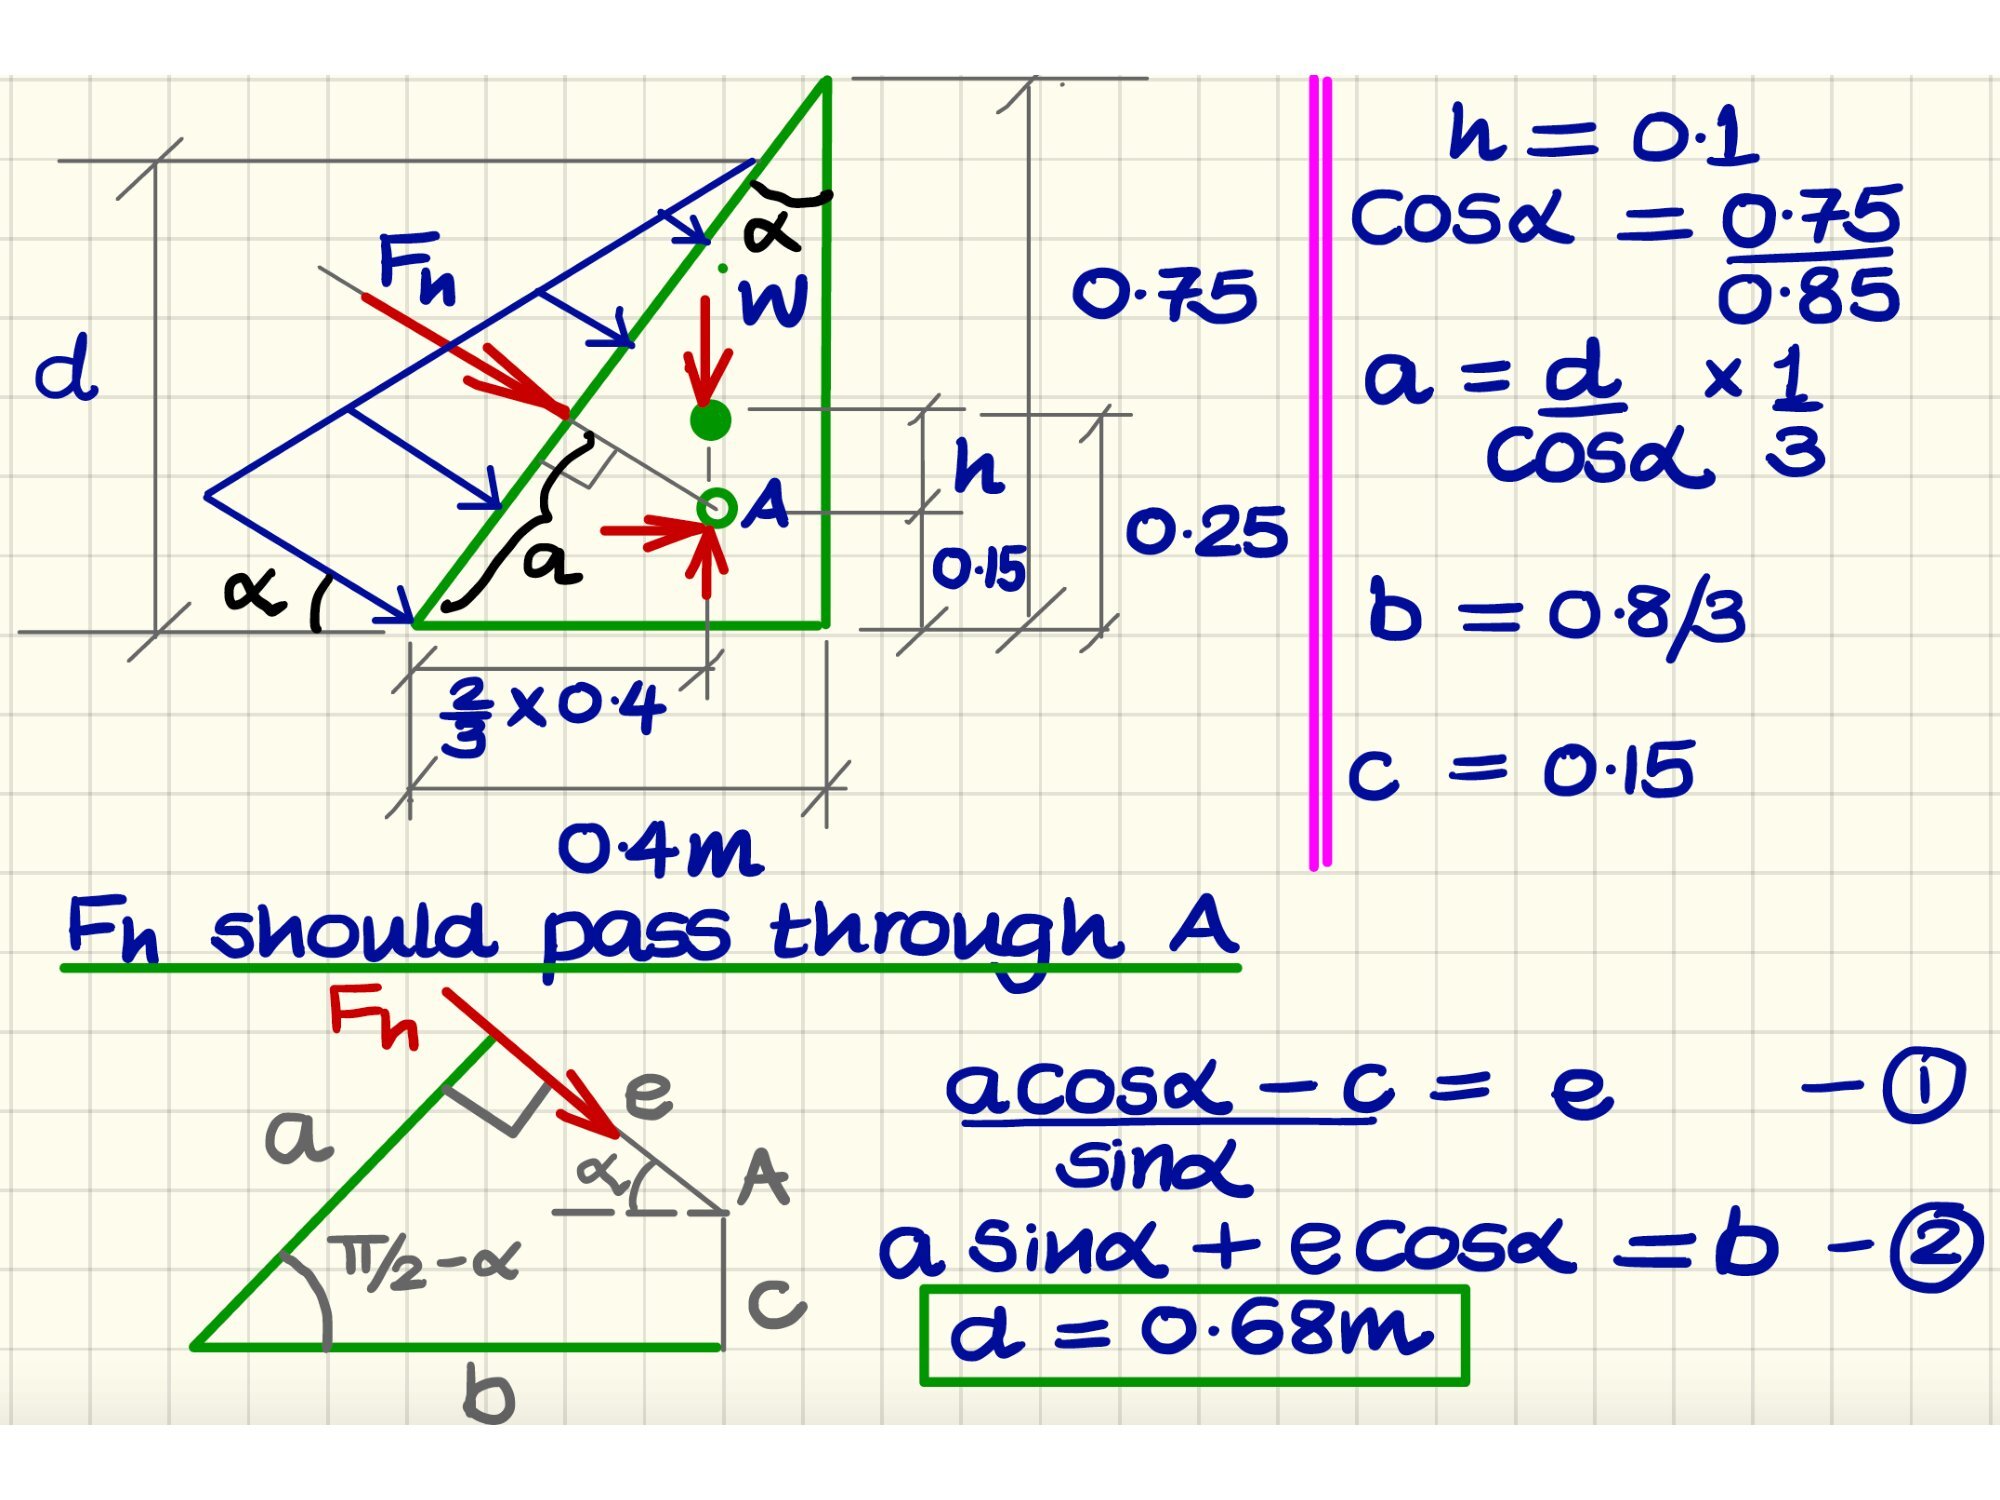 d
Fn
α
W
0.75
h
A
0.15
0.25
a
α
2/3 × 0.4
0.4m
h = 0.1
cosα = 0.75/0.85
a = d/cosα × 1/3
b = 0.8/3
c = 0.15
Fn should pass through A
Fn
a
e
α
A
π/2-α
c
b
(acosα - c)/sinα = e - ①
a sinα + e cosα = b - ②
d = 0.68m